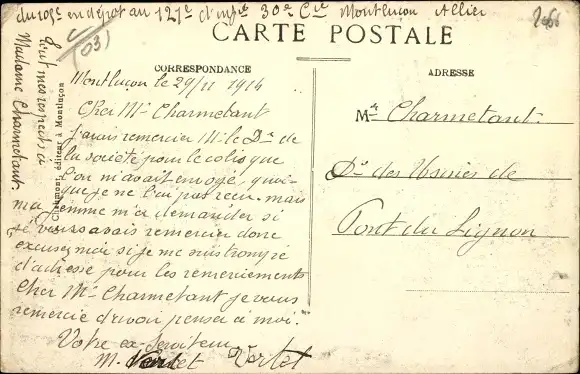 du 109e en dépôt au 121e d'infie 30e Cie Montluçon Allier
(03)
CARTE POSTALE
CORRESPONDANCE
ADRESSE
Montlucon le 29/11 1914
Cher Mr Charmetant
J'avais remercier Mr le Dr de
la société pour le colis que
l'on m'avait envoyé, quoi-
que je ne l'ai pas reçu. mais
ma femme m'a demander si
je vous avais remercier donc
excusez moi si je me suis trompé
d'adresse pour les remerciements
Cher Mr Charmetant je vous
remercie d'avoir penser a moi.
Votre ex Serviteur
M. Vertet Vertet
Tout mes respects à
Madame Charmetant.
éditeur à Montluçon
Mr Charmetant
Dr des Usines de
Pont du Lignon